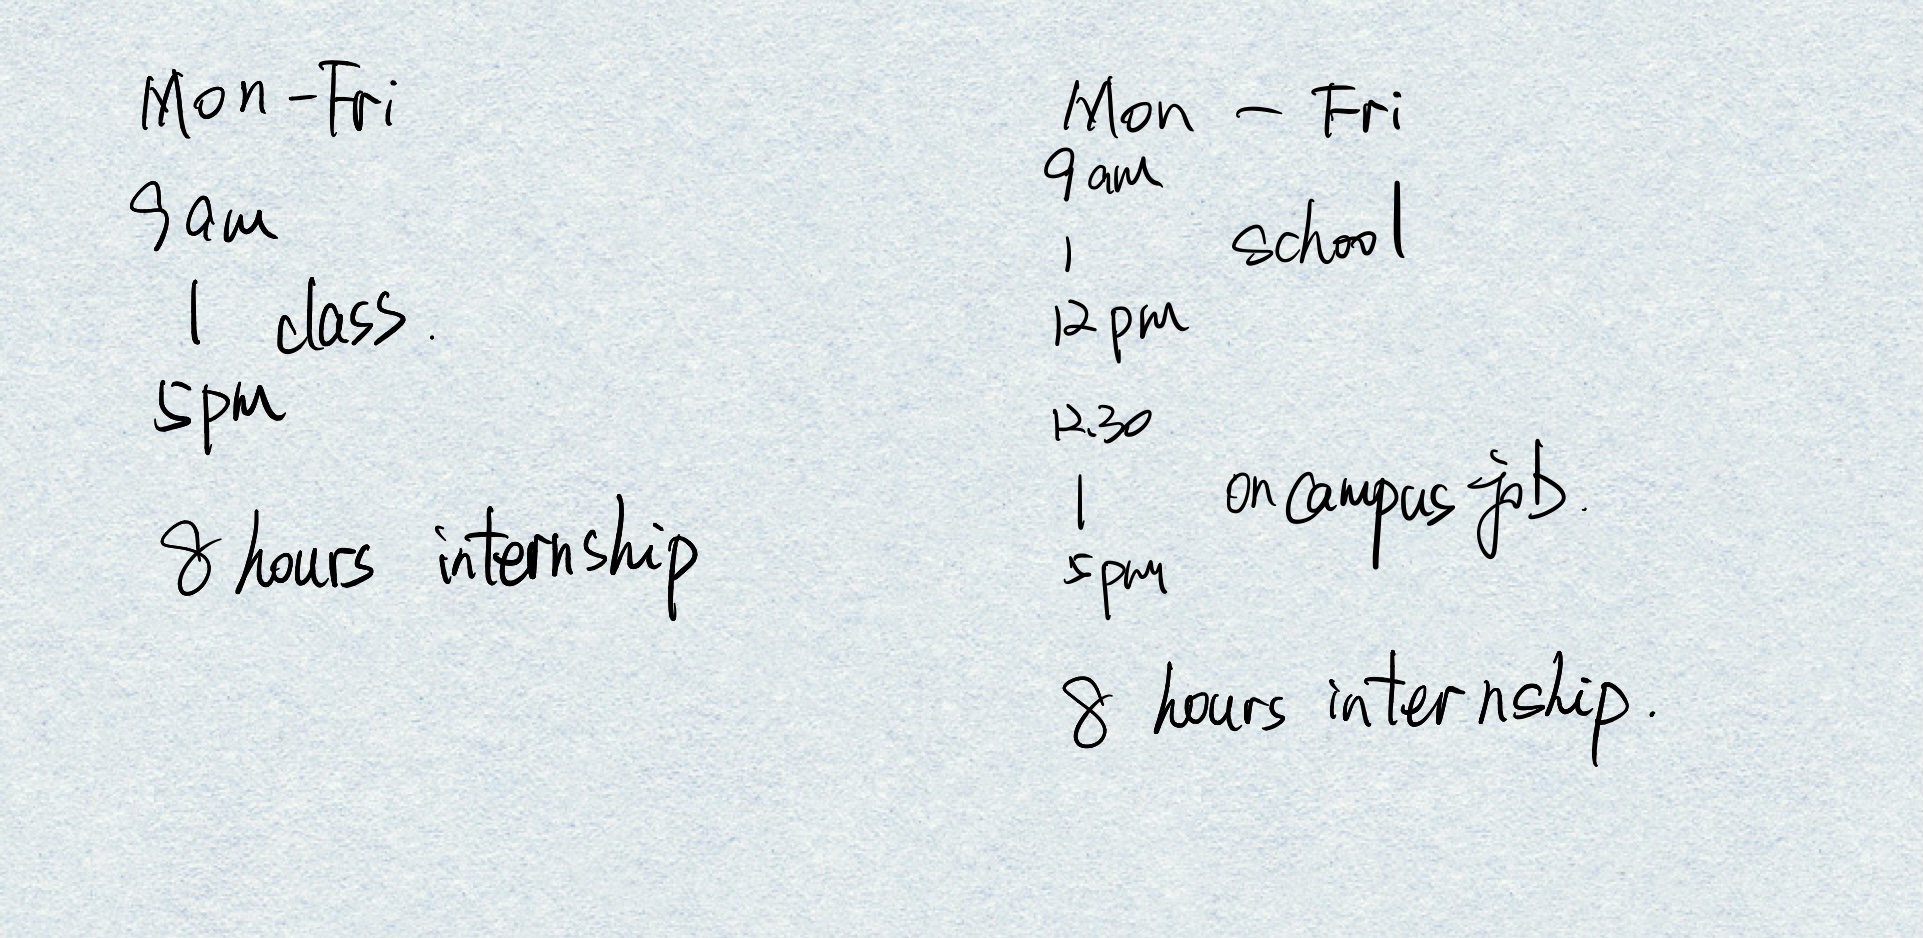 Mon-Fri
9am
| class.
5pm
8 hours internship
Mon - Fri
9am
| school
12pm
12.30
| on campus job.
5pm
8 hours internship.